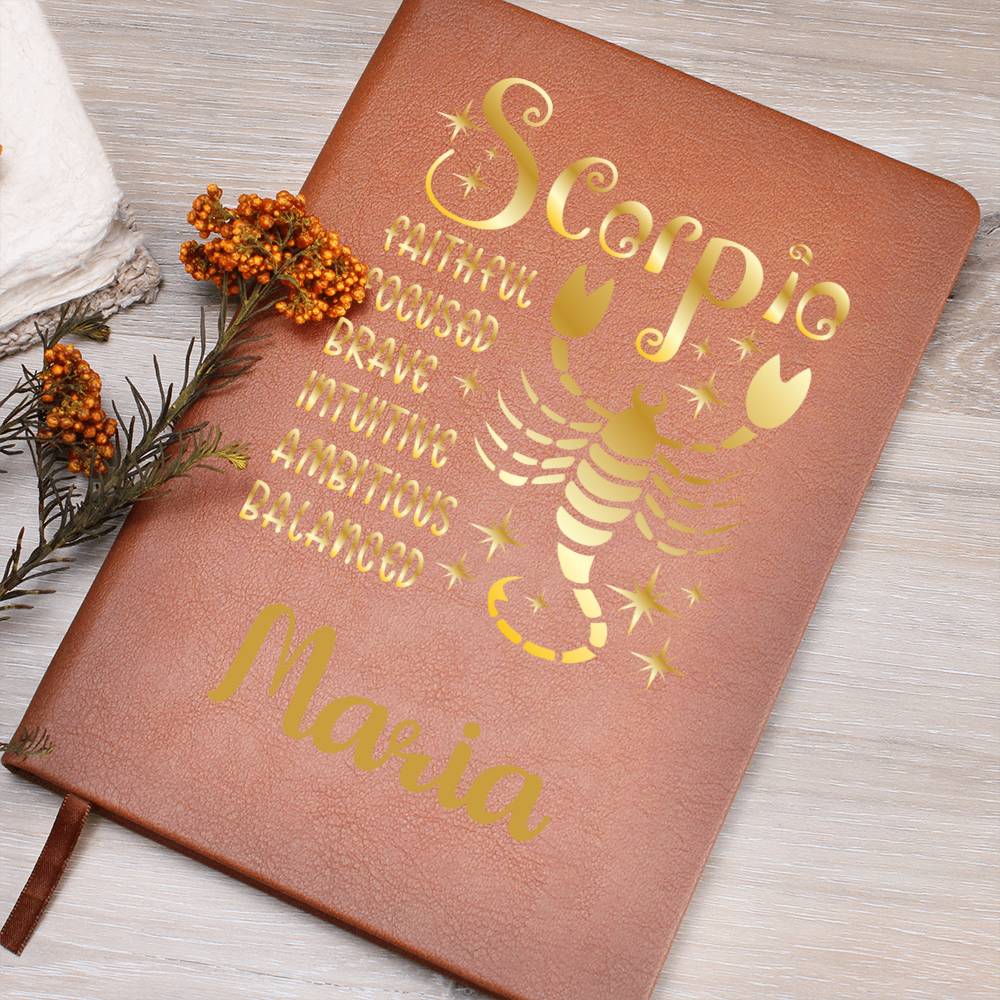 Scorpio
FAITHFUL
FOCUSED
BRAVE
INTUITIVE
AMBITIOUS
BALANCED
Maria